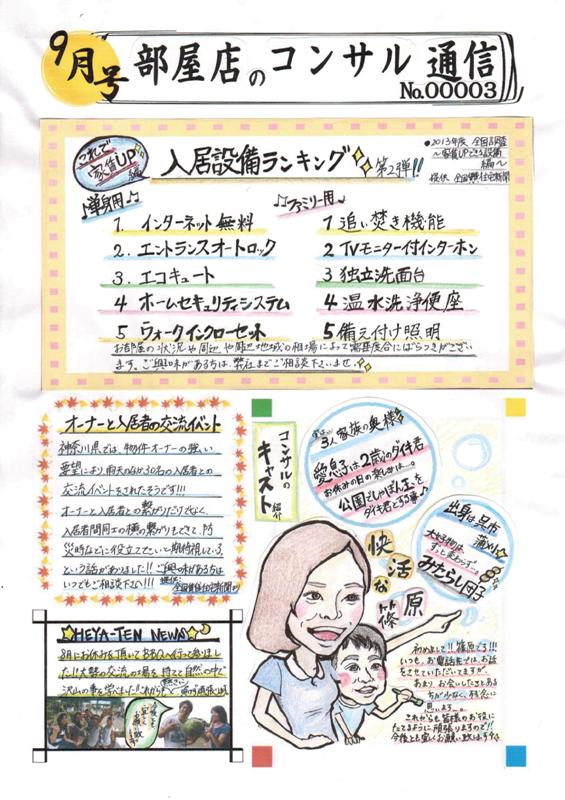 9月号
部屋店のコンサル通信
No.00003
これで
家賃UP
編
入居設備ランキング 第2弾!!
●2013年度 全国調査
～家賃UPできる設備
編～
提供 全国賃貸住宅新聞
♪単身用♪
1. インターネット無料
2. エントランスオートロック
3. エコキュート
4 ホームセキュリティシステム
5 ウォークインクローゼット
♪ファミリー用♪
1 追い焚き機能
2 TVモニター付インターホン
3 独立洗面台
4 温水洗浄便座
5 備え付け照明
お部屋の状況や周辺
地域の相場によって
ます。ご興味がある方は、弊社までご相談下さいませ
オーナーと入居者の交流イベント
神奈川県では、物件オーナーの強い
要望により、雨天のなか30名の入居者との
交流イベントをされたそうです!!!
オーナーと入居者との繋がりだけでなく、
入居者間同士の横の繋がりもできて、防
災時などに役立てたいと期待している、
という話がありました!! ご興味がある方は
いつでもご相談下さい!!!
提供:
全国賃貸住宅新聞
コンサルの
キャスト
紹介
実は…
3人家族の奥様
愛息子は2歳のダイキ君
お休みの日の楽しみは…。
公園でしゃぼん玉を
ダイキ君とする事♪
出身は呉市
蒲刈
大好物は、
みたらし団子
快活な
篠原
初めまして!! 篠原です!!!
いつも、お電話先では、お話
をさせていただいてますが、
あまり、お会いしたことある
方が少なく、残念に
思います…。
これからも皆様のお役に
たてるように頑張りますので!!
今後とも宜しくお願い致します
HEYA-TEN NEWS
8月にお休みを頂いてBBQへ行って参りまし
た!! 大勢の交流の場を持てて自然の中で
沢山の事を学べました!!